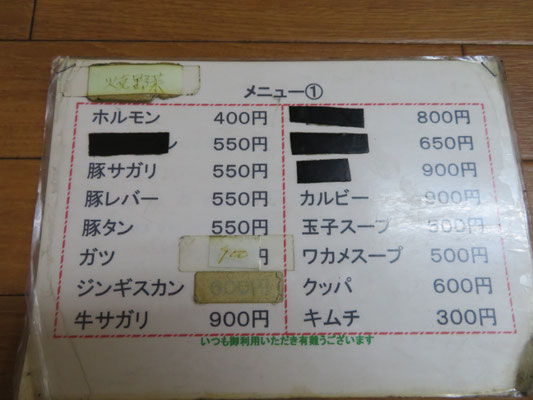 焼野菜
メニュー①
ホルモン 400円
ン 550円
豚サガリ 550円
豚レバー 550円
豚タン 550円
ガツ 900 円
ジンギスカン 600円
牛サガリ 900円
800円
650円
900円
カルビー 900円
玉子スープ 300円
ワカメスープ 500円
クッパ 600円
キムチ 300円
いつも御利用いただき有難うございます